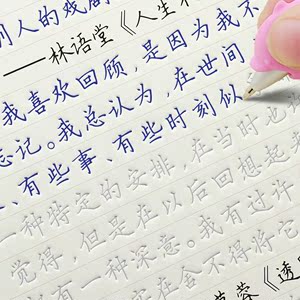 别人的戏剧
——林语堂《人生不
我喜欢回顾，是因为我不
忘记。我总认为，在世间
、有些事、有些时刻似
一种特定的安排，在当时也许
觉得，但是在以后回想起来
有一种深意。我有过许
实在舍不得将它
慕蓉《透